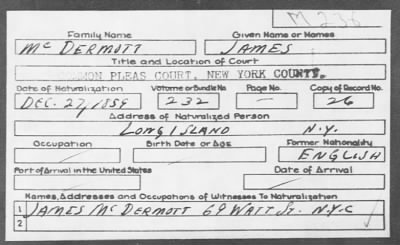 M 236
Family Name Given Name or Names
McDERMOTT JAMES
Title and Location of Court
COMMON PLEAS COURT, NEW YORK COUNTY.
Date of Naturalization Volume or Bundle No. Page No. Copy of Record No.
DEC. 27, 1859 232 — 26
Address of Naturalized Person
LONG ISLAND N.Y.
Occupation Birth Date or Age Former Nationality
ENGLISH
Port of Arrival in the United States Date of Arrival
Names, Addresses and Occupations of Witnesses To Naturalization
1 JAMES McDERMOTT 69 WATT St. N.Y.C
2